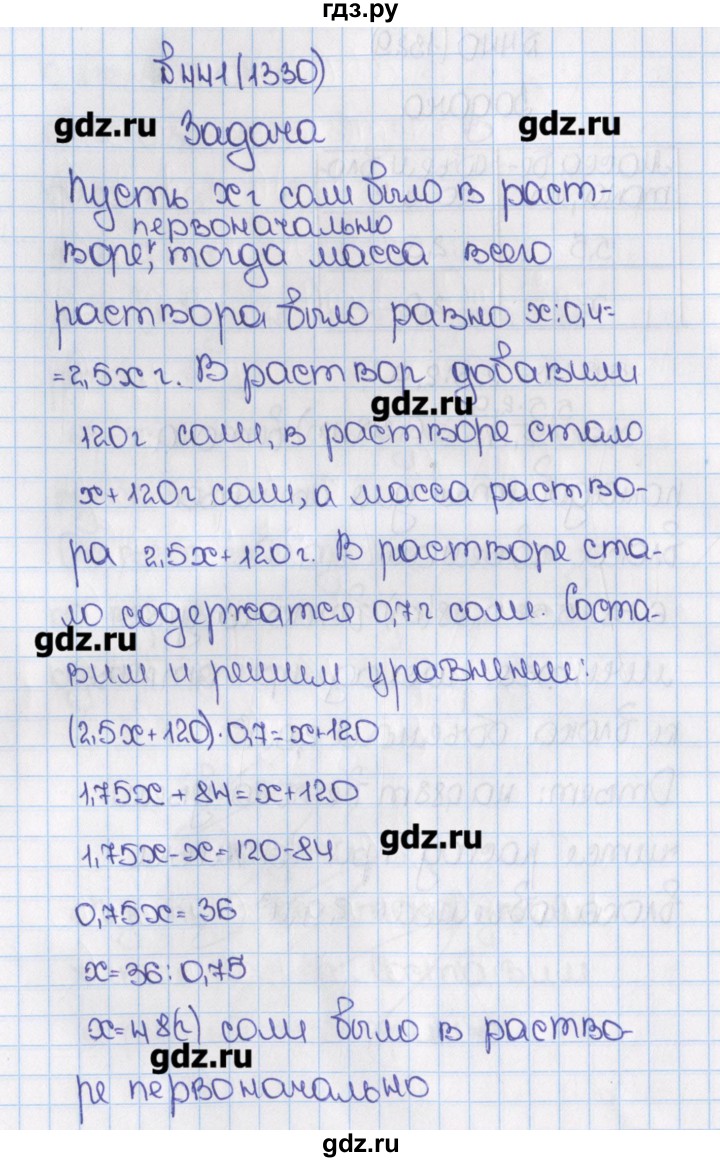 гдз.ру
В441(1330)
gdz.ru
gdz.ru
Задача
Пусть х г соли было в раст-
первоначально
воре, тогда масса всего
раствора было равно х:0,4=
=2,5х г. В раствор добавили
gdz.ru
120г соли, в растворе стало
х+120г соли, а масса раство-
ра 2,5х+120г. В растворе ста-
ло содержатся 0,7г соли. Соста-
gdz.ru
вим и решим уравнение:
(2,5х+120)·0,7=х+120
1,75х+84=х+120
gdz.ru
1,75х-х=120-84
0,75х=36
х=36:0,75
х=48(г) соли было в раство-
gdz.ru
ре первоначально
gdz.ru